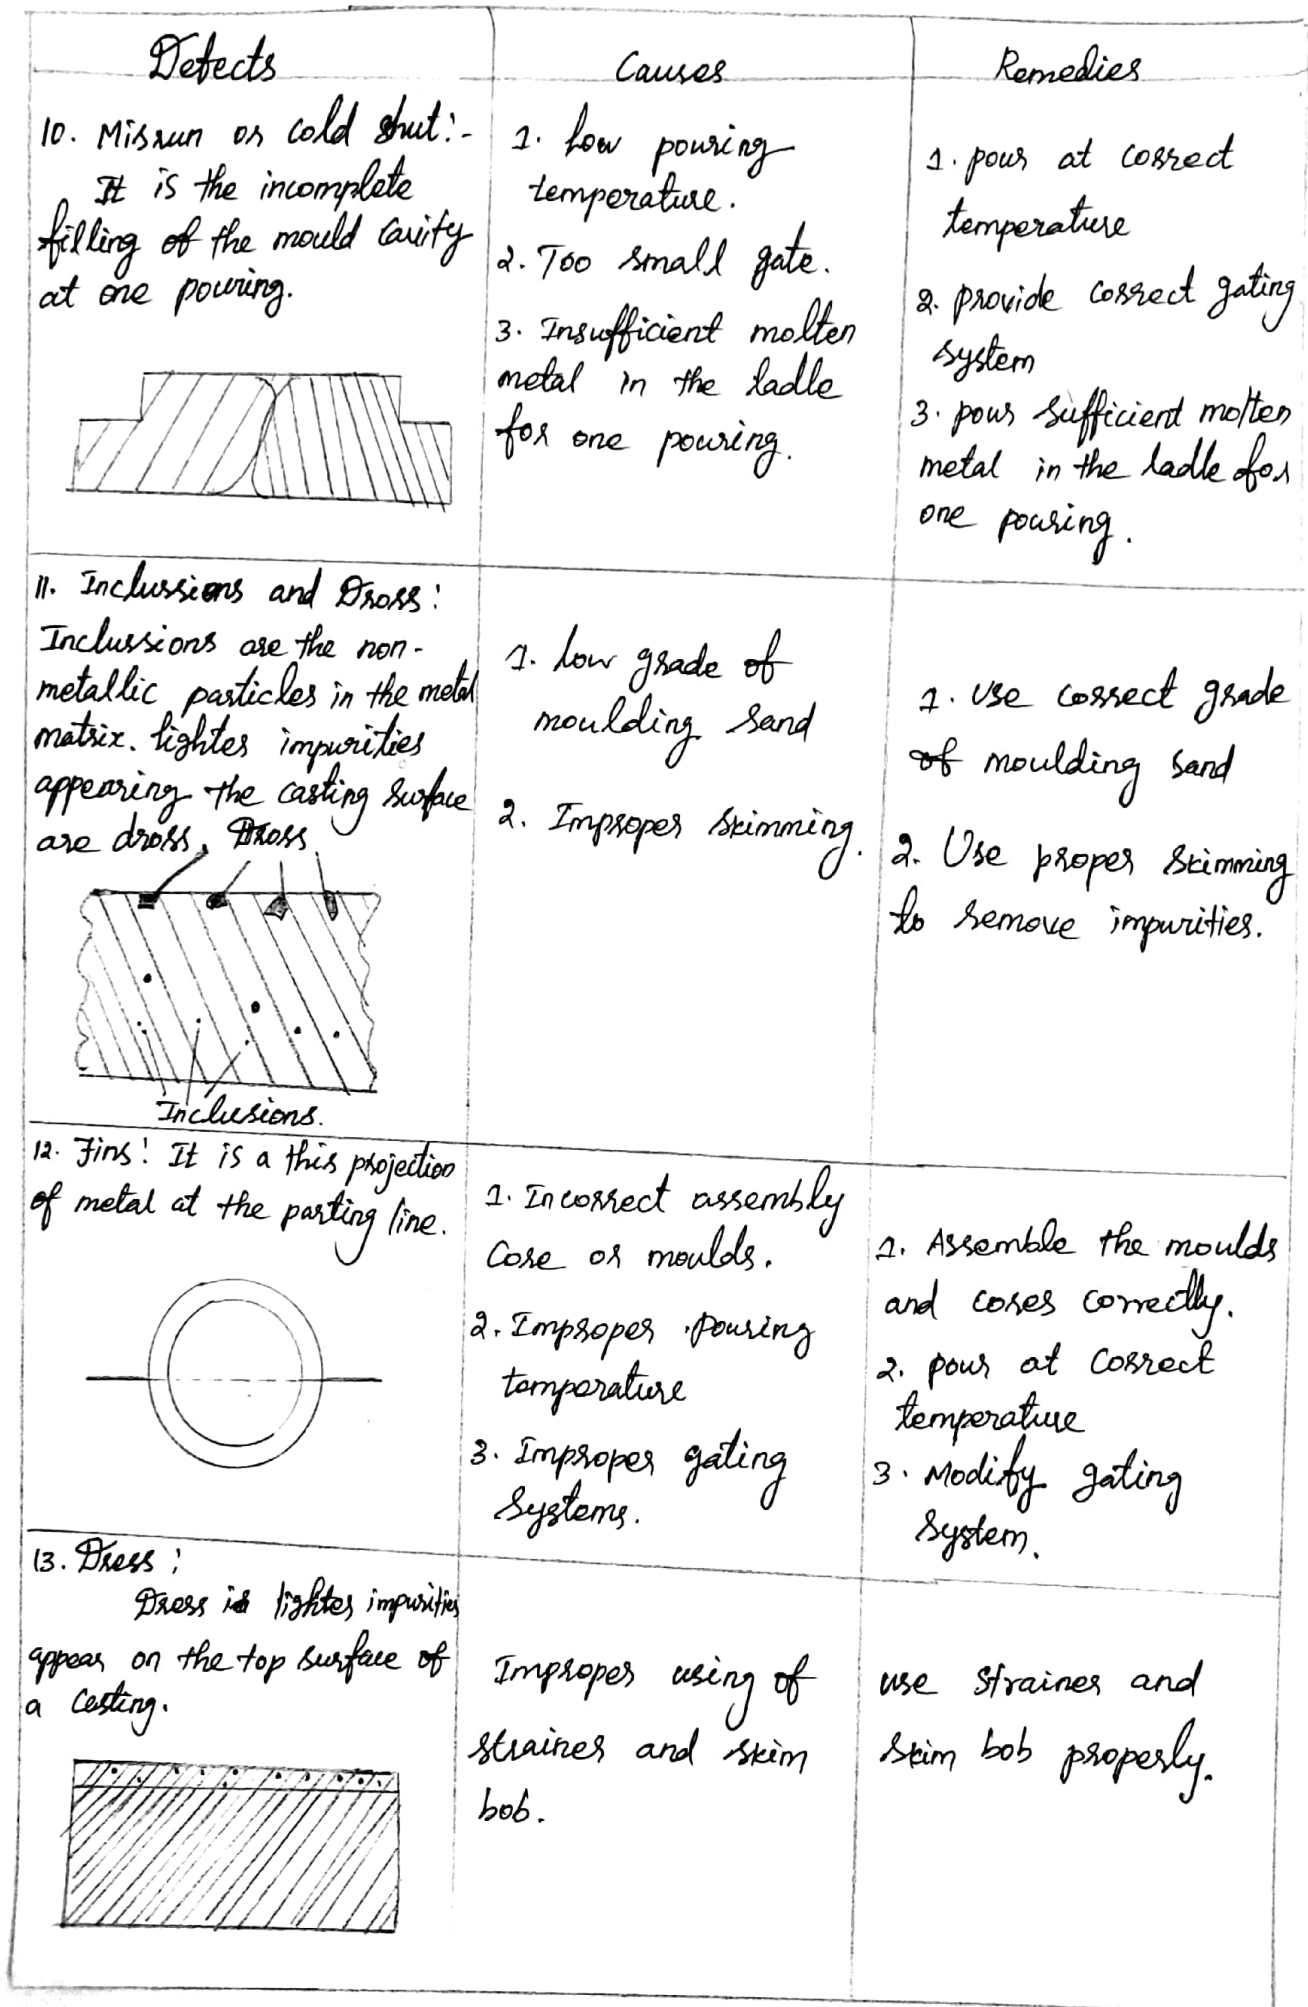 Defects
Causes
Remedies
10. Misrun or cold shut:-
It is the incomplete
filling of the mould cavity
at one pouring.
1. Low pouring
temperature.
2. Too small gate.
3. Insufficient molten
metal in the ladle
for one pouring.
1. pour at correct
temperature
2. provide correct gating
system
3. pour sufficient molten
metal in the ladle for
one pouring.
11. Inclussions and Dross:
Inclussions are the non-
metallic particles in the metal
matrix. lighter impurities
appearing the casting surface
are dross. Dross
Inclusions.
1. Low grade of
moulding sand
2. Improper skimming.
1. use correct grade
of moulding sand
2. Use proper skimming
to remove impurities.
12. Fins: It is a this projection
of metal at the parting line.
1. Incorrect assembly
Core or moulds.
2. Improper pouring
temperature
3. Improper gating
systems.
1. Assemble the moulds
and cores correctly.
2. pour at correct
temperature
3. Modify gating
system.
13. Dress:
Dress is lighter impurities
appear on the top surface of
a casting.
Improper using of
strainer and skim
bob.
use strainer and
skim bob properly.